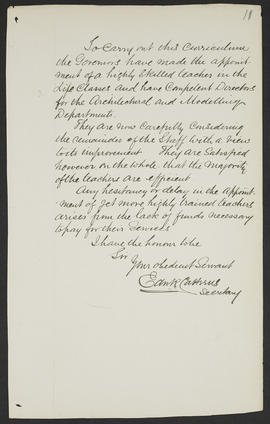 11
To carry out this Curriculum
the Governors have made the appoint
ment of a highly skilled teacher in the
Life Classes and have Competent Directors
for the Architectural and Modelling
Departments.
They are now Carefully Considering
the remainder of the Staff with a view
to its improvement. They are Satisfied
however on the whole that the Majority
of the teachers are efficient
Any hesitancy or delay in the appoint
ment of yet more highly trained teachers
arises from the lack of funds necessary
to pay for their Services
I have the honour to be
Sir
Your obedient Servant
Secretary